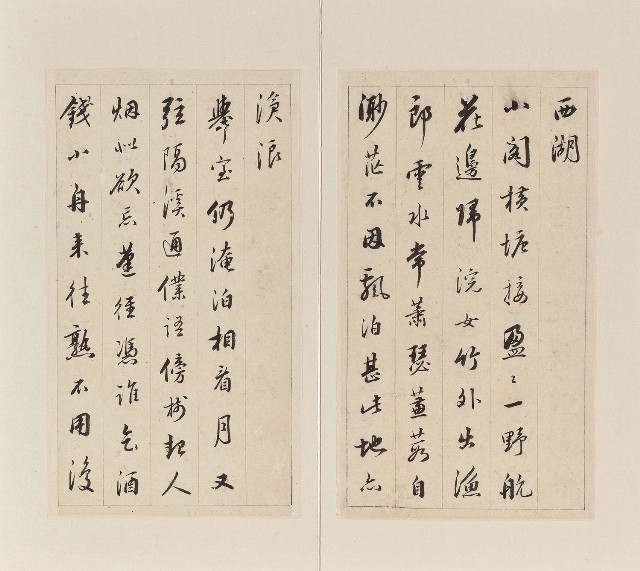 西湖
小閣横塘接盈〻一野航
花邊歸浣女竹外出漁
郎雲水常蕭瑟蒹葭自
渺茫不因飄泊甚此地亦
滄浪
舉室仍淹泊相看月又
弦隔溪通僕語傍樹起人
烟欲忘徑憑誰乞酒
錢小舟来往熟不用復